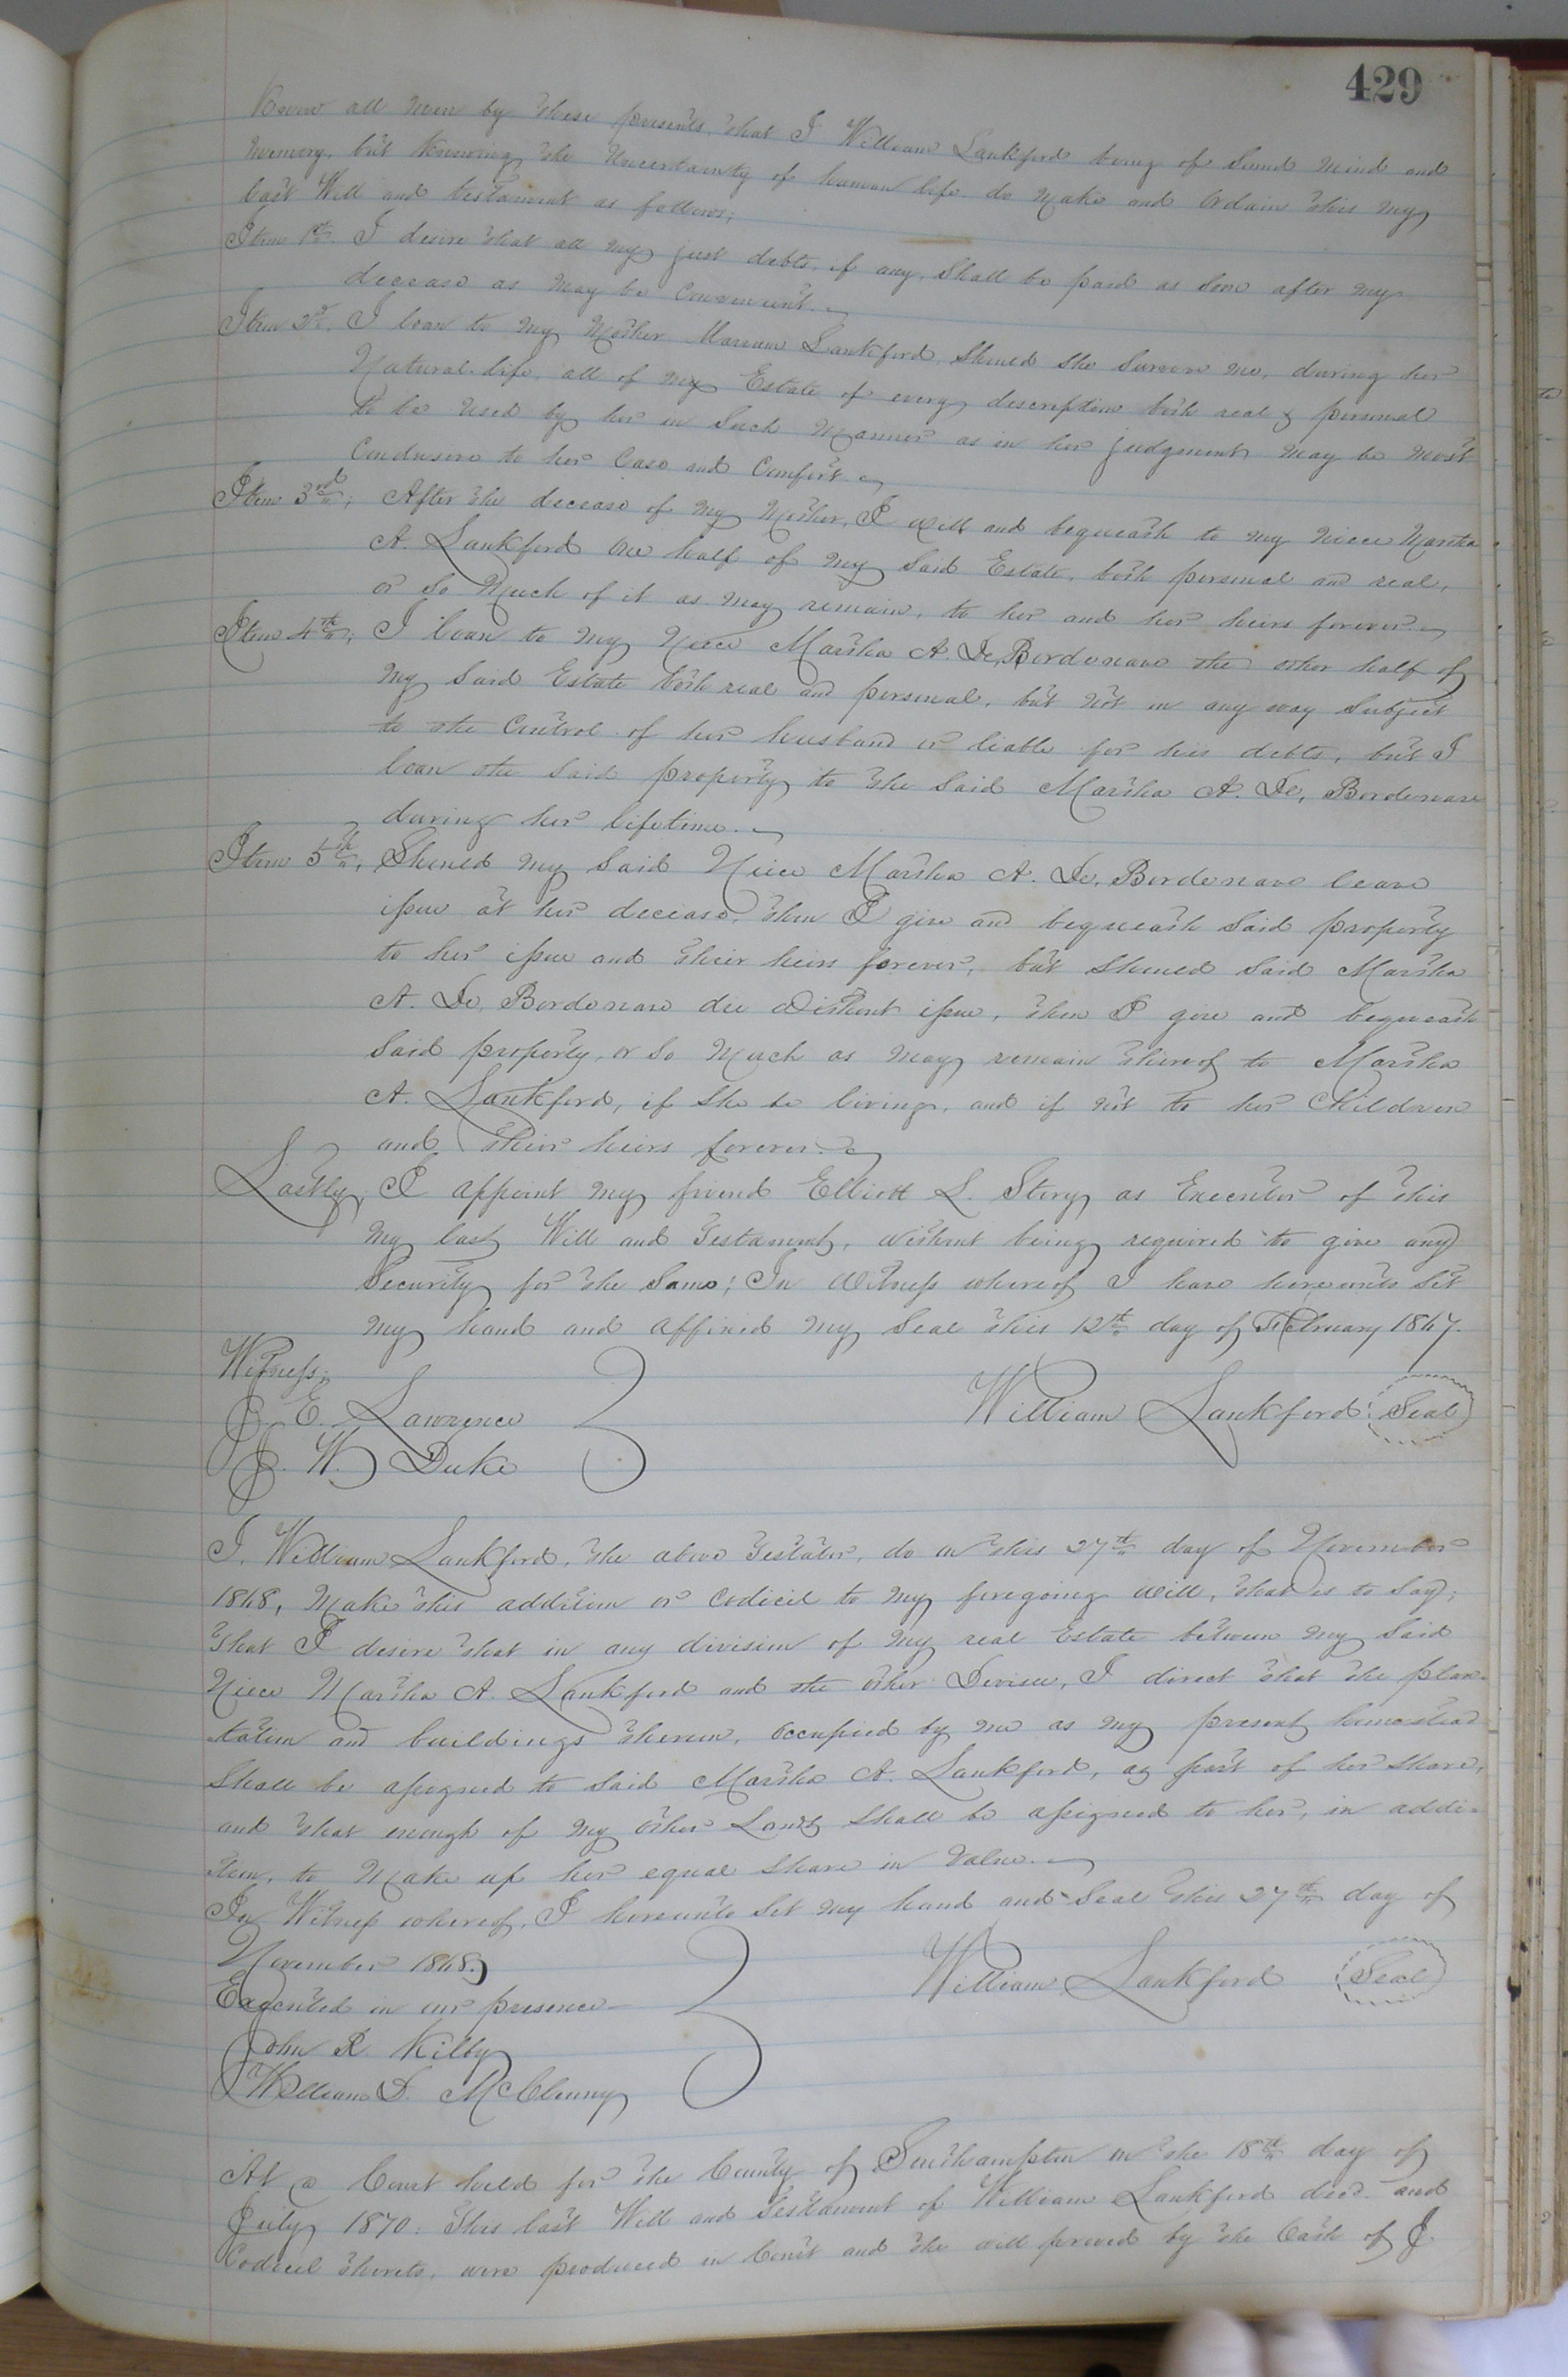 429
Know all men by these presents, that I William Lankford being of Sound mind and
memory, but knowing the Uncertainty of human life do make and Ordain this my
last Will and testament as follows;
Item 1st. I desire that all my just debts, if any, Shall be paid as Soon after my
decease as may be Convenient.
Item 2d. I loan to my Mother Mariam Lankford, Should She Survive me, during her
Natural life, all of my Estate of every description both real & personal
to be used by her in Such manner as in her judgment may be most
Conducive to her Ease and Comfort.
Item 3rd; After the decease of my Mother, I will and bequeath to my niece Martha
A. Lankford One half of my Said Estate, both personal and real,
or So Much of it as may remain, to her and her heirs forever.
Item 4th; I loan to my Niece Martha A. De, Bordenave the other half of
my Said Estate both real and personal, but not in any way Subject
to the Control of her husband or liable for his debts, but I
loan the Said property to the Said Martha A. De, Bordenave
during her lifetime.
Item 5th, Should my Said Niece Martha A. De, Bordenave leave
issue at her decease, then I give and bequeath Said property
to her issue and their heirs forever, but Should Said Martha
A. De, Bordenave die Without issue, then I give and bequeath
Said property, or So Much as may remain thereof to Martha
A. Lankford, if She be living, and if not to her Children
and their heirs forever.
Lastly; I appoint my friend Elliott L. Story as Executor of this
my last Will and Testament, Without being required to give any
Security for the Same; In Witness whereof I have hereunto Set
my hand and affixed my Seal this 12th day of February 1867.
Witness;
J. E. Lawrence
William Lankford Seal
J. W. Duke
I, William Lankford, the above Testator, do on this 27th day of November
1868, Make this addition or Codicil to my foregoing Will, that is to Say;
That I desire that in any division of my real Estate between my Said
Niece Martha A. Lankford and the other Devisee, I direct that the plan-
tation and buildings thereon, Occupied by me as my present homestead
Shall be assigned to Said Martha A. Lankford, as part of her Share,
and that enough of my other Lands Shall be assigned to her, in addi-
tion, to Make up her equal Share in Value.
In Witness whereof, I hereunto Set my hand and Seal this 27th day of
November 1868.
William Lankford Seal
Executed in our presence
John R. Kilby
William D. McClenny
At a Court held for the County of Southampton on the 18th day of
July 1870: This last Will and Testament of William Lankford decd. and
Codicil thereto, were produced in Court and the Will proved by the Oath of J.